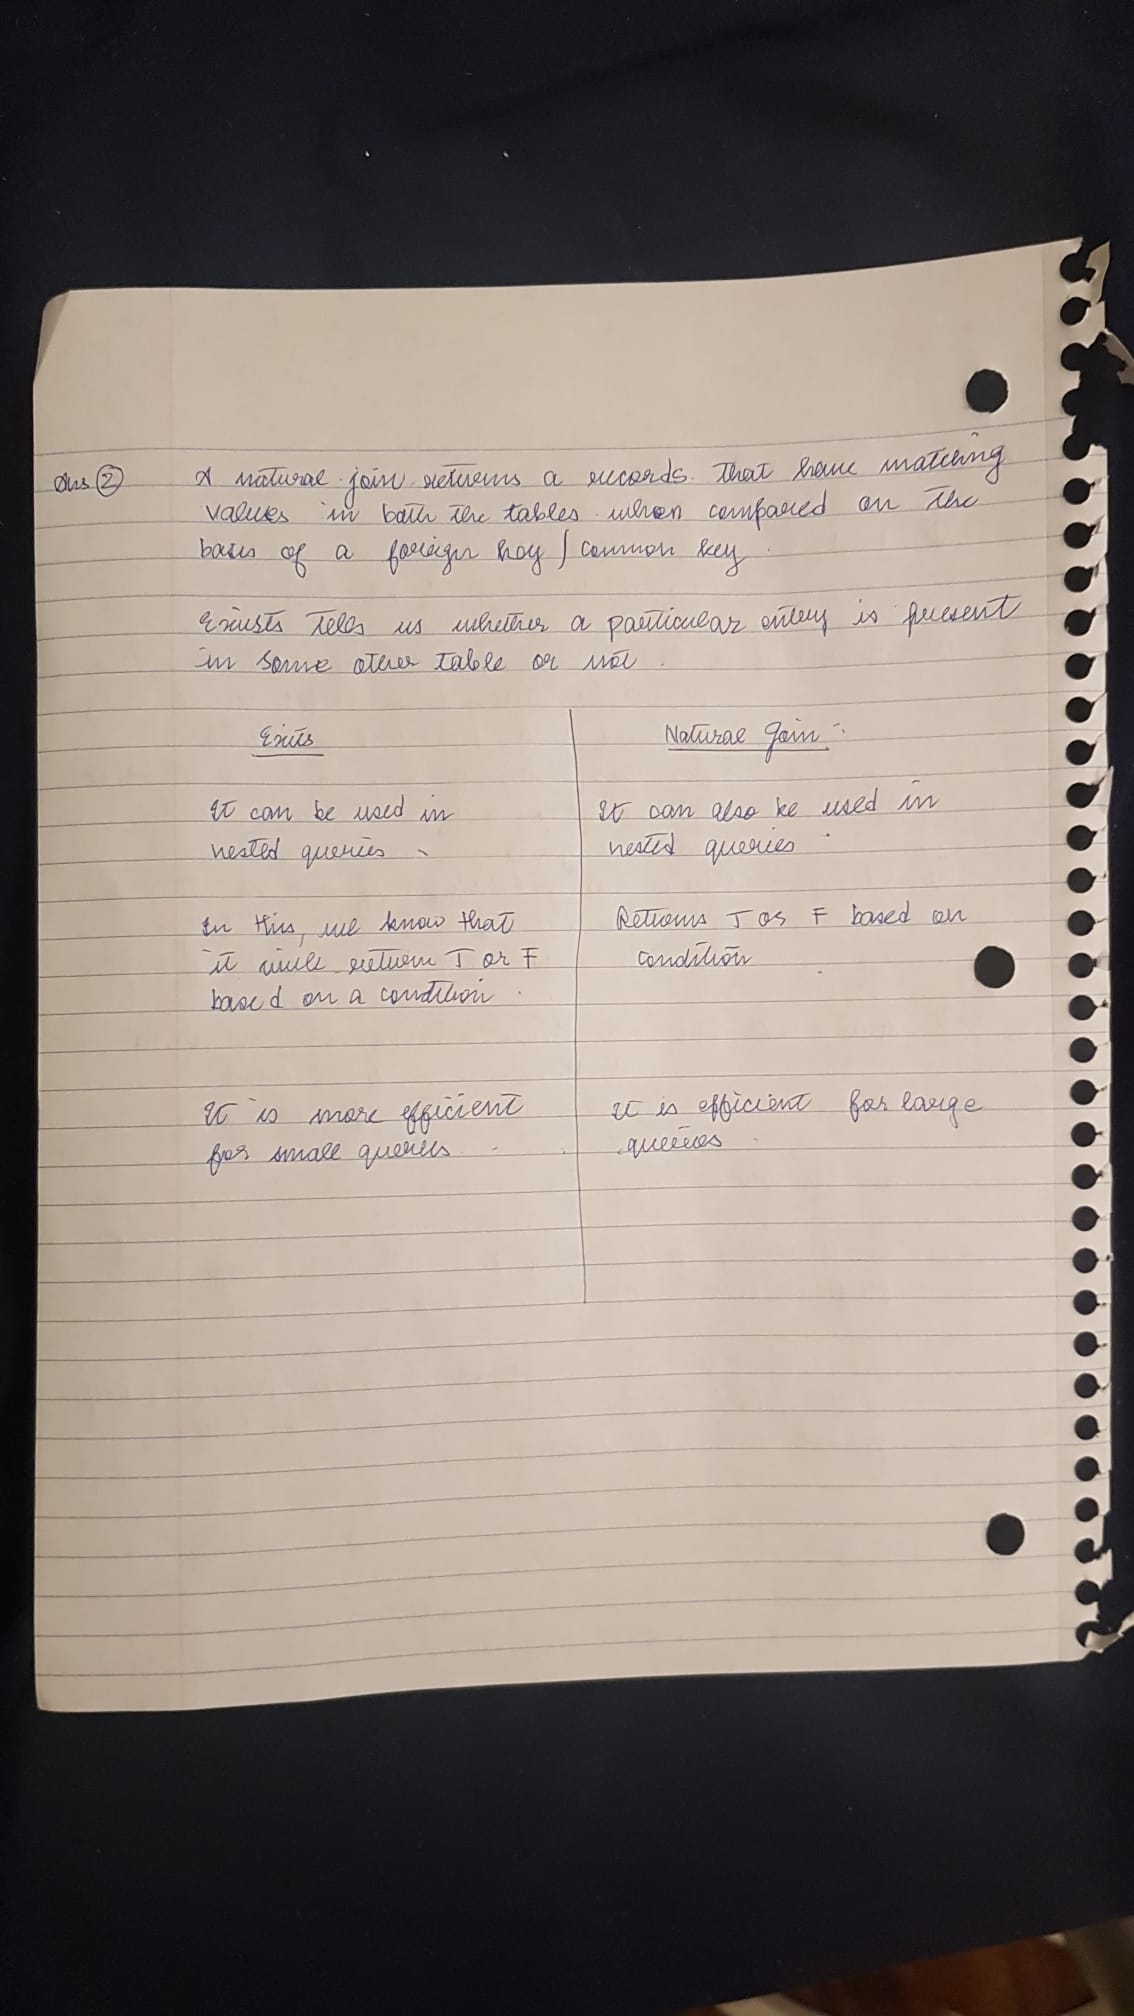 Ans ② A natural join returns a records that have matching
values in both the tables when compared on the
basis of a foreign key / common key.
Exists tells us whether a particular entry is present
in some other table or not.
Exits
Natural Join :-
It can be used in
nested queries.
It can also be used in
nested queries.
In this, we know that
it will return T or F
based on a condition.
Returns T or F based on
condition
It is more efficient
for small queries.
It is efficient for large
queries.